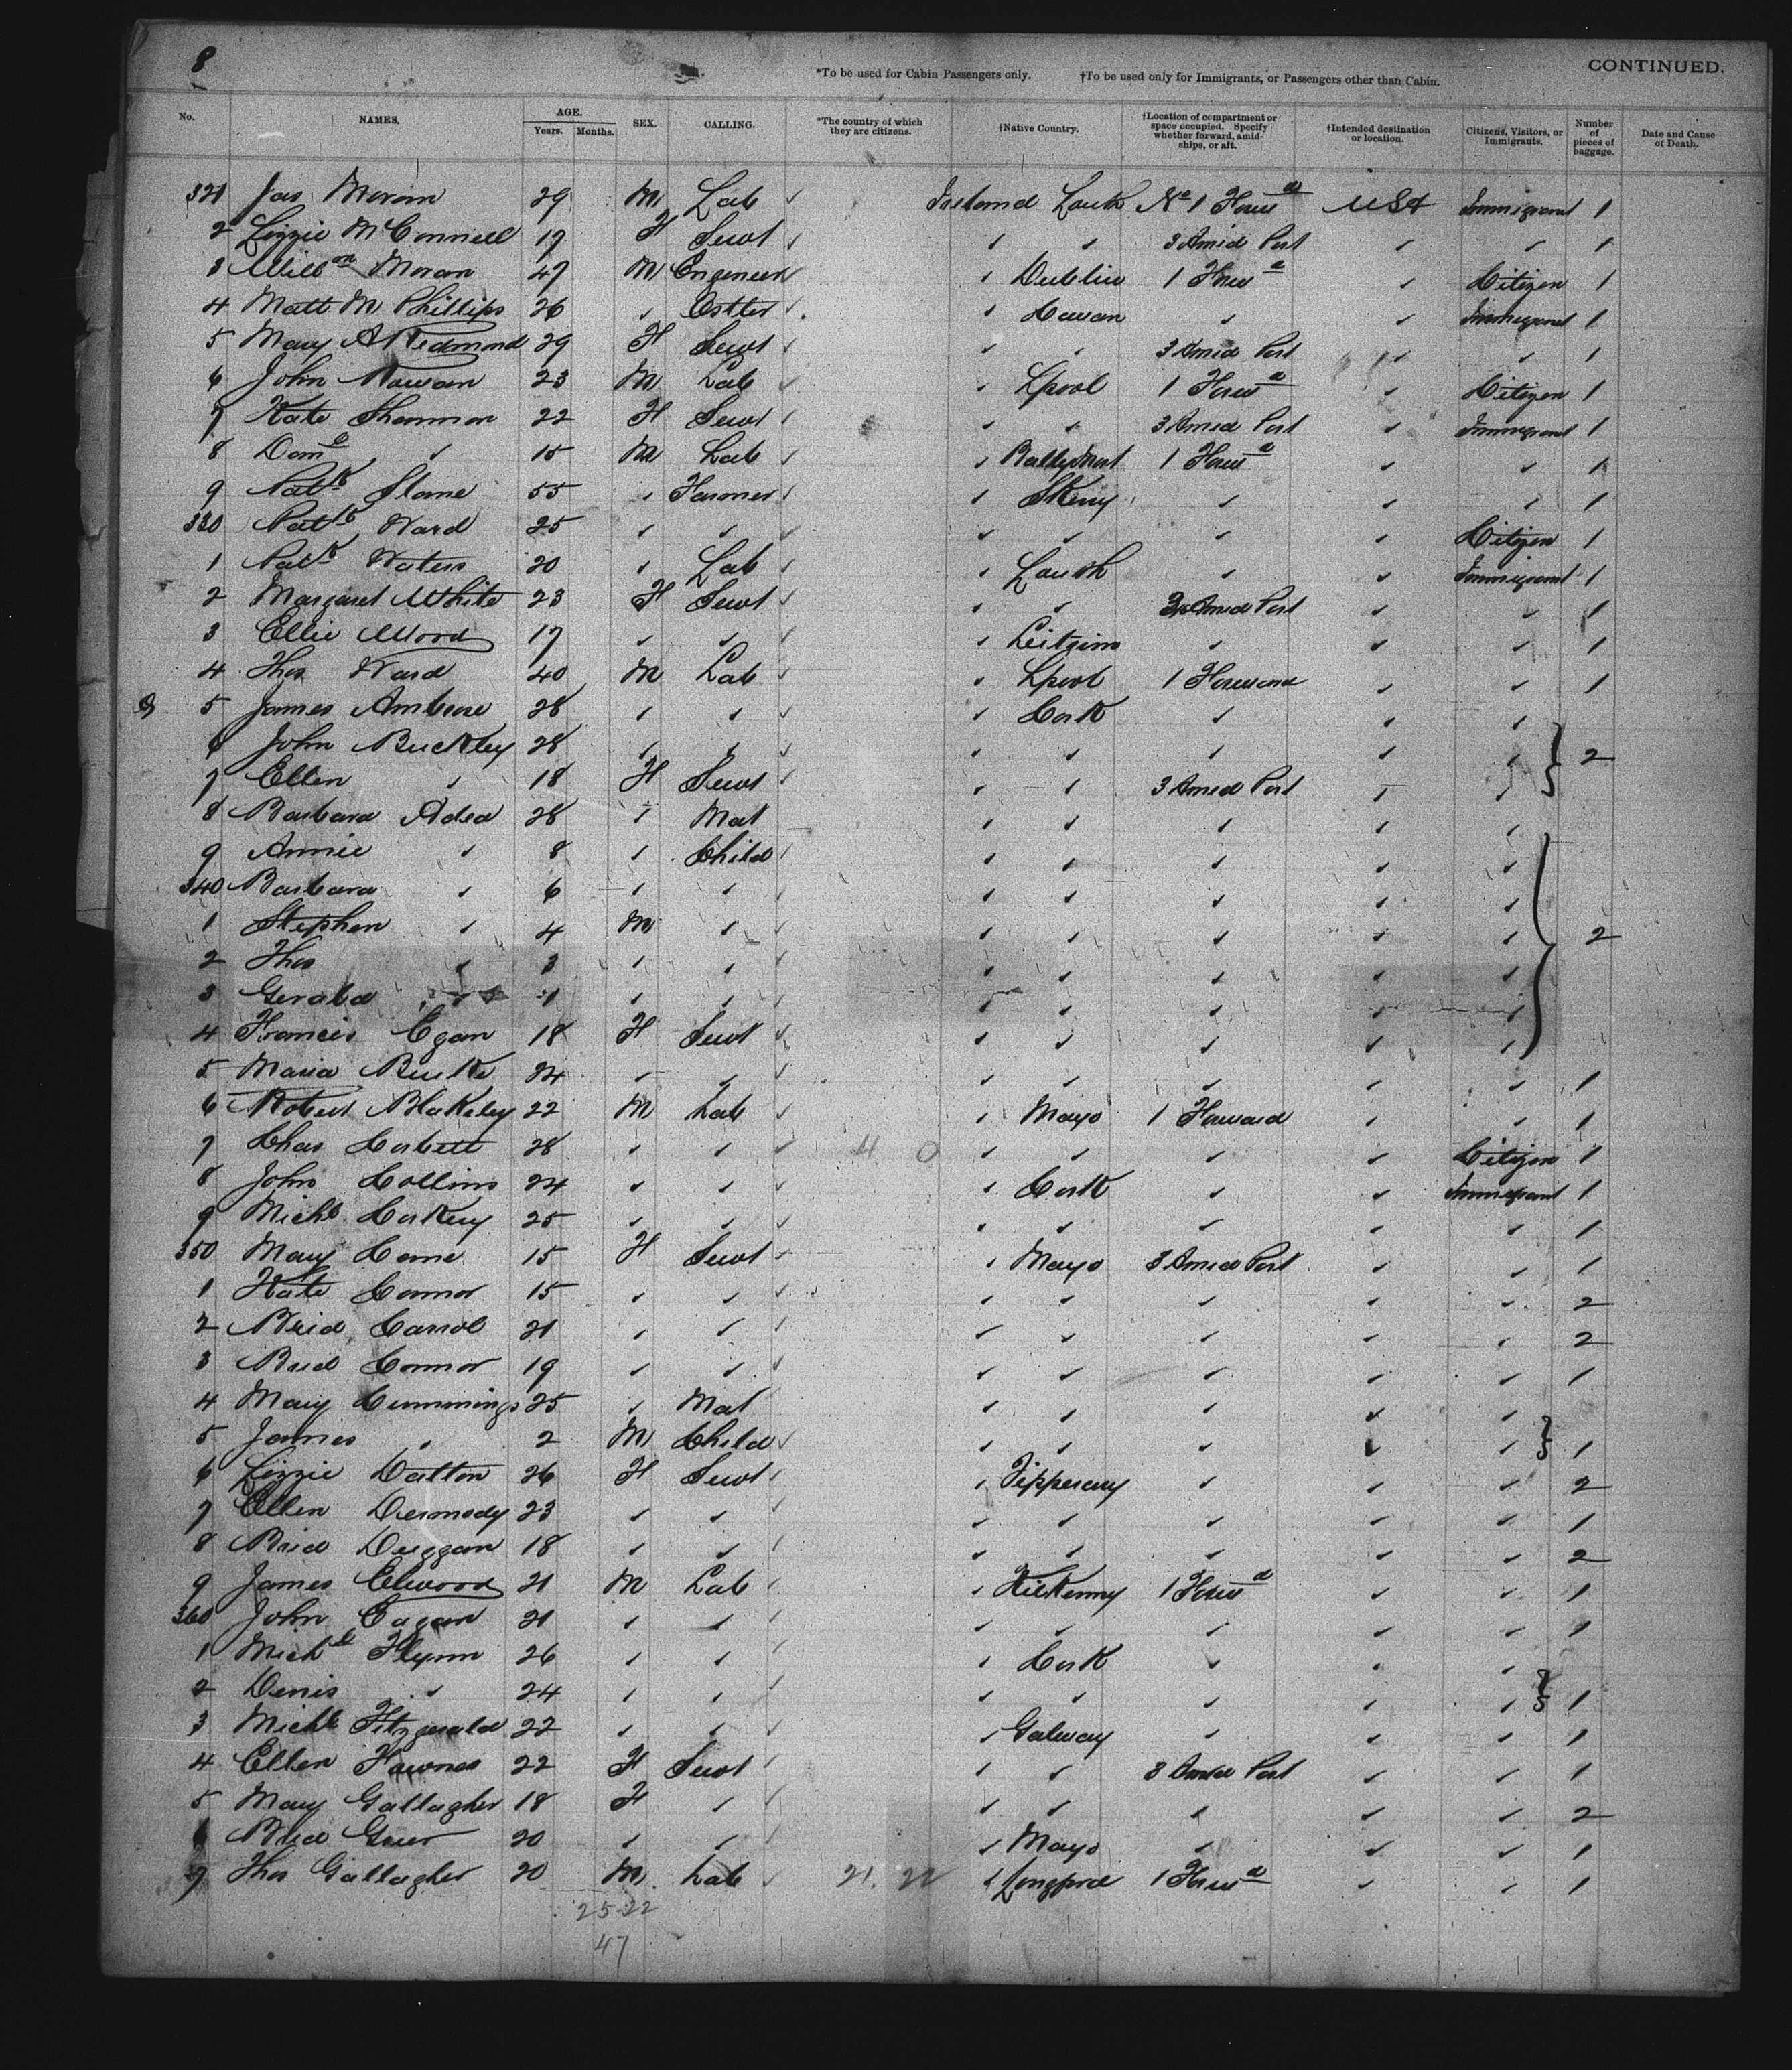 8
*To be used for Cabin Passengers only. †To be used only for Immigrants, or Passengers other than Cabin. CONTINUED.
No. NAMES. AGE. Years. Months. SEX. CALLING. *The country of which they are citizens. †Native Country. †Location of compartment or space occupied. Specify whether forward, amidships, or aft. †Intended destination or location. Citizens, Visitors, or Immigrants. Number of pieces of baggage. Date and Cause of Death.
321 Jas Moran 29 M Lab ✓ Ireland Louth No 1 Forwd USA Immigrant 1
2 Lizzie McConnell 17 F Servt ✓ ✓ ✓ 3 Amid Port ✓ ✓ 1
3 Willon Moran 47 M Engineer ✓ Dublin 1 Forwd ✓ Citizen 1
4 Matt M Phillips 26 ✓ Ostler ✓ Cavan ✓ ✓ Immigrant 1
5 Mary A Redmond 29 F Servt ✓ ✓ ✓ 3 Amid Port ✓ ✓ 1
6 John Rowan 23 M Lab ✓ ✓ Lpool 1 Forwd ✓ Citizen 1
7 Kate Shannon 22 F Servt ✓ ✓ ✓ 3 Amid Port ✓ Immigrant 1
8 Doml ✓ 15 M Lab ✓ ✓ 1 Forwd ✓ ✓ 1
9 Patk Slame 55 ✓ Farmer ✓ ✓ ✓ ✓ ✓ 1
330 Patk Ward 25 ✓ ✓ ✓ ✓ ✓ ✓ Citizen 1
1 Patk Waters 20 ✓ Lab ✓ ✓ Louth ✓ ✓ Immigrant 1
2 Margaret White 23 F Servt ✓ ✓ ✓ 3 Amid Port ✓ ✓ 1
3 Ellie Wood 17 ✓ ✓ ✓ ✓ Leitrim ✓ ✓ ✓ 1
4 Thos Ward 40 M Lab ✓ ✓ Lpool 1 Forward ✓ ✓ 1
5 James Ambrose 28 ✓ ✓ ✓ ✓ Cork ✓ ✓ ✓
6 John Buckley 28 ✓ ✓ ✓ ✓ ✓ ✓ ✓ ✓ 2
7 Ellen ✓ 18 F Servt ✓ ✓ ✓ 3 Amid Port ✓ ✓
8 Barbara Adea 28 ✓ Mat ✓ ✓ ✓ ✓ ✓
9 Annie ✓ 8 ✓ Child ✓ ✓ ✓ ✓ ✓ ✓
340 Barbara ✓ 6 ✓ ✓ ✓ ✓ ✓ ✓ ✓ ✓
1 Stephen ✓ 4 M ✓ ✓ ✓ ✓ ✓ ✓ ✓ 2
2 Thos ✓ 3 ✓ ✓ ✓ ✓ ✓ ✓ ✓ ✓
3 Gerald ✓ 1 ✓ ✓ ✓ ✓ ✓ ✓ ✓ ✓
4 Francis Egan 18 F Servt ✓ ✓ ✓ ✓ ✓ ✓
5 Maria Burke 24 ✓ ✓ ✓ ✓ ✓ ✓ ✓ ✓ 1
6 Robert Blakeley 22 M Lab ✓ ✓ Mayo 1 Forward ✓ ✓ 1
7 Chas Corbett 28 ✓ ✓ ✓ 4 0 ✓ ✓ ✓ ✓ Citizen 1
8 John Collins 24 ✓ ✓ ✓ ✓ Cork ✓ ✓ Immigrant 1
9 Michl Corkery 25 ✓ ✓ ✓ ✓ ✓ ✓ ✓ ✓ 1
350 Mary Come 15 F Servt ✓ ✓ Mayo 3 Amid Port ✓ ✓ 1
1 Kate Connor 15 ✓ ✓ ✓ ✓ ✓ ✓ ✓ ✓ 2
2 Brid Carrol 21 ✓ ✓ ✓ ✓ ✓ ✓ ✓ ✓ 2
3 Brid Connor 19 ✓ ✓ ✓ ✓ ✓ ✓ ✓ ✓ 1
4 Mary Cummings 25 ✓ Mat ✓ ✓ ✓ ✓ ✓
5 James ✓ 2 M Child ✓ ✓ ✓ ✓ ✓ ✓ 1
6 Lizzie Dalton 26 F Servt ✓ ✓ Tipperary ✓ ✓ ✓ 2
7 Ellen Dermody 23 ✓ ✓ ✓ ✓ ✓ ✓ ✓ ✓ 1
8 Brid Duggan 18 ✓ ✓ ✓ ✓ ✓ ✓ ✓ ✓ 2
9 James Elwood 21 M Lab ✓ ✓ Kilkenny 1 Forwd ✓ ✓ 1
360 John Eagan 21 ✓ ✓ ✓ ✓ ✓ ✓ ✓ ✓ 1
1 Michl Flynn 26 ✓ ✓ ✓ ✓ Cork ✓ ✓ ✓
2 Denis ✓ 24 ✓ ✓ ✓ ✓ ✓ ✓ ✓ ✓ 1
3 Michl Fitzgerald 22 ✓ ✓ ✓ ✓ Galway ✓ ✓ ✓ 1
4 Ellen Fawnes 22 F Servt ✓ ✓ ✓ 3 Amid Port ✓ ✓ 1
5 Mary Gallagher 18 F ✓ ✓ ✓ ✓ ✓ ✓ ✓ 2
6 Brid Greer 20 ✓ ✓ ✓ ✓ Mayo ✓ ✓ ✓ 1
7 Thos Gallagher 20 M Lab ✓ 21. 22 ✓ Longford 1 Forwd ✓ ✓ 1
25-22
47